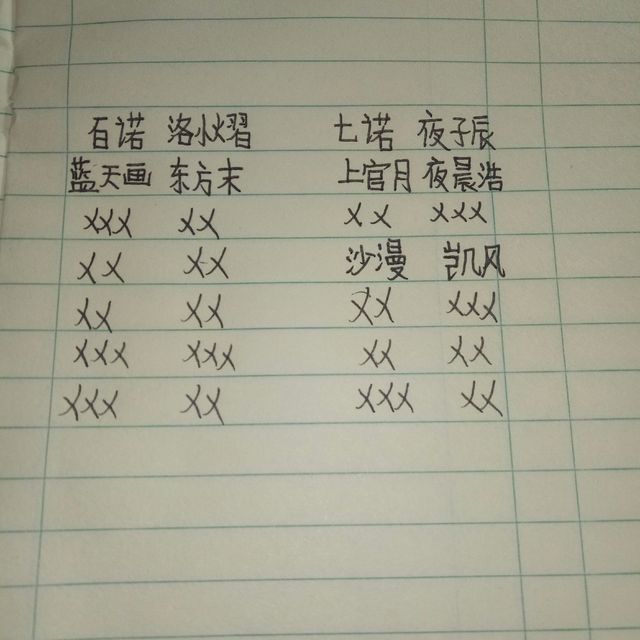 百诺 洛小熠 七诺 夜子辰
蓝天画 东方末 上官月 夜晨浩
XXX XX XX XXX
XX XX 沙漫 凯风
XX XX XX XXX
XXX XXX XX XX
XXX XX XXX XX